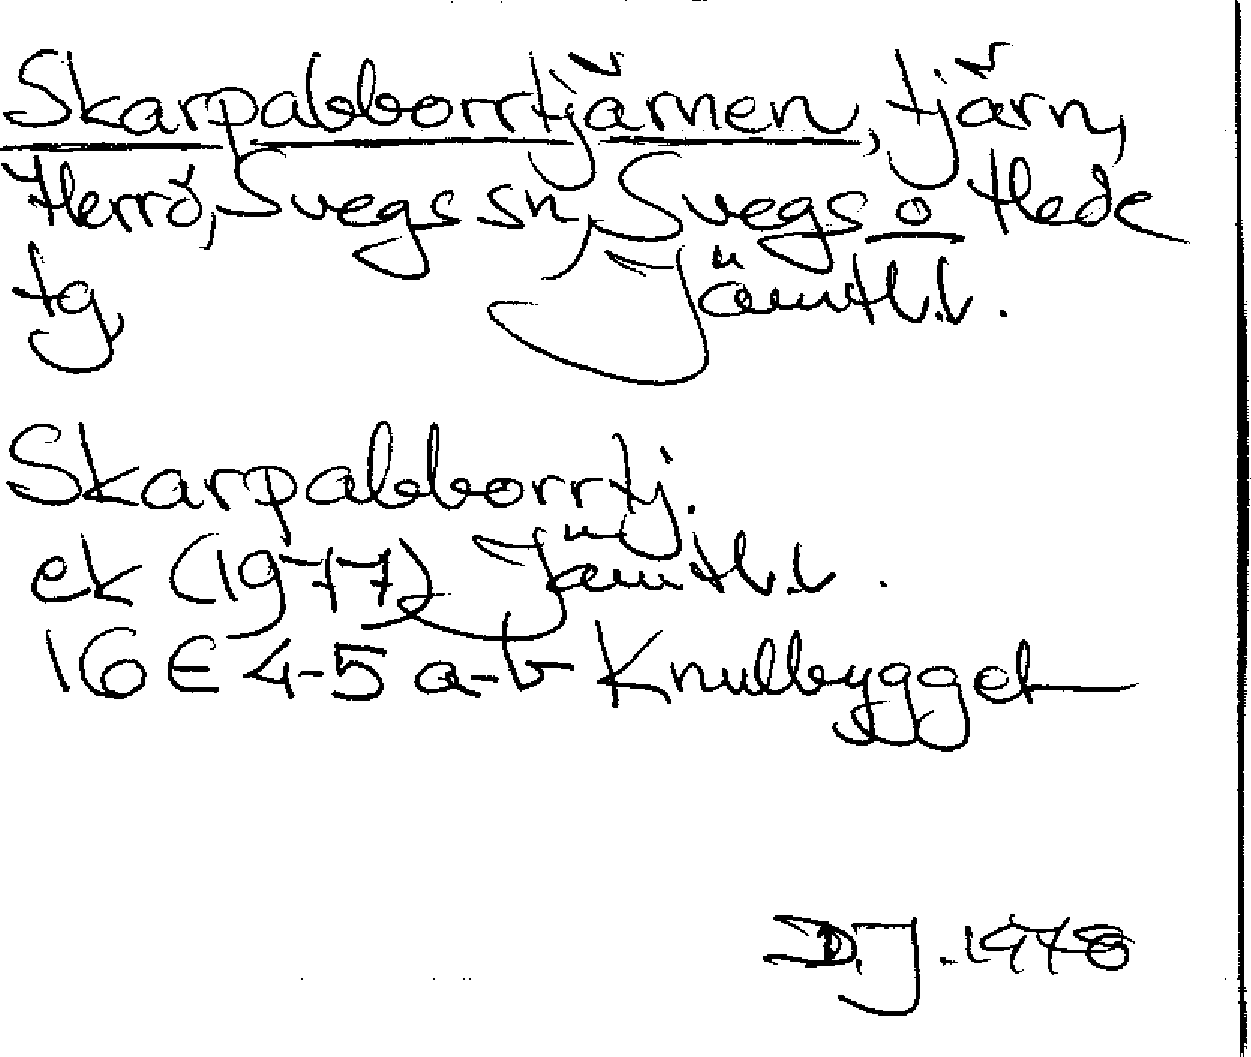 Skarpabborrtjärnen, tjärn,
Herrö, Svegs sn, Svegs o Hede
tg, Jämtl.l.
Skarpabborrtj.
ek (1977) Jämtl.l.
16E 4-5 a-b Knullbygget
D.J. 1978